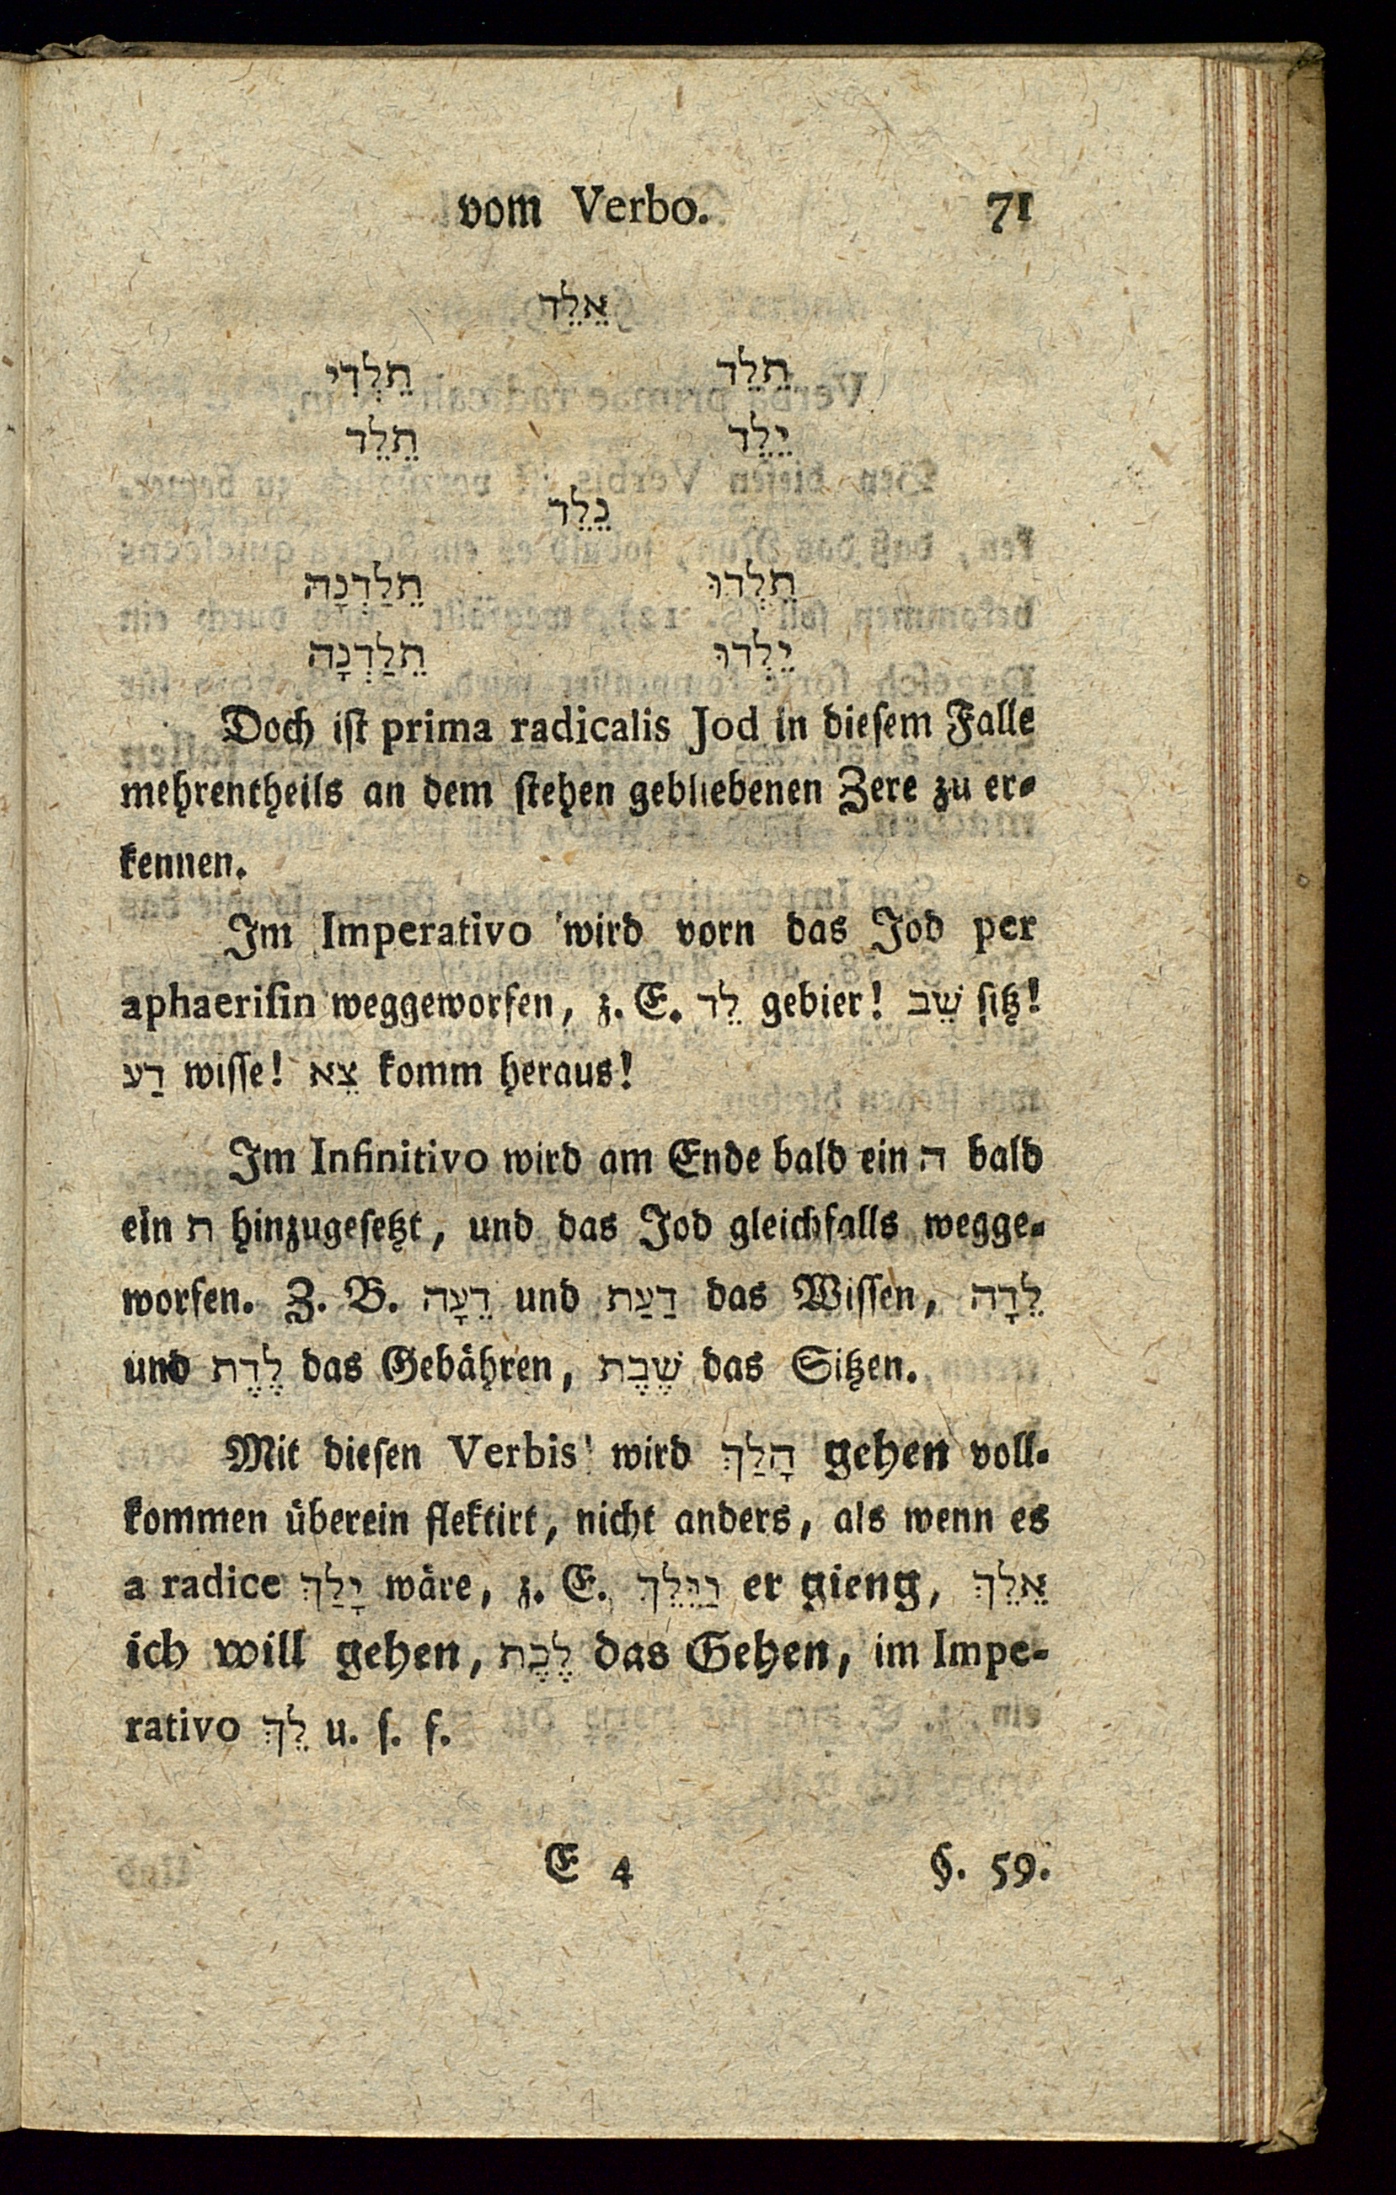 vom Verbo. 71
אֵלֵד
תֵלֵד תֵלְדִי
יֵלֵד תֵלֵד
נֵלֵד
תֵלְדוּ תֵלַדְנָה
יֵלְדוּ תֵלַדְנָה
Doch iſt prima radicalis Jod in dieſem Falle
mehrentheils an dem ſtehen gebliebenen Zere zu er-
kennen.
Im Imperativo wird vorn das Jod per
aphaeriſin weggeworfen, z. E. לֵד gebier! שֵׁב ſitz!
דַע wiſſe! צֵא komm heraus!
Im Infinitivo wird am Ende bald ein ה bald
ein ת hinzugeſetzt, und das Jod gleichfalls wegge-
worfen. Z. B. דֵעָה und דַעַת das Wiſſen, לֵדָה
und לֶדֶת das Gebähren, שֶׁבֶת das Sitzen.
Mit dieſen Verbis wird הָלַךְ gehen voll-
kommen überein flektirt, nicht anders, als wenn es
a radice יָלַךְ wäre, z. E. וַיֵּלֵךְ er gieng, אֵלֵךְ
ich will gehen, לֶכֶת das Gehen, im Impe-
rativo לֵךְ u. ſ. f.
E 4 §. 59.